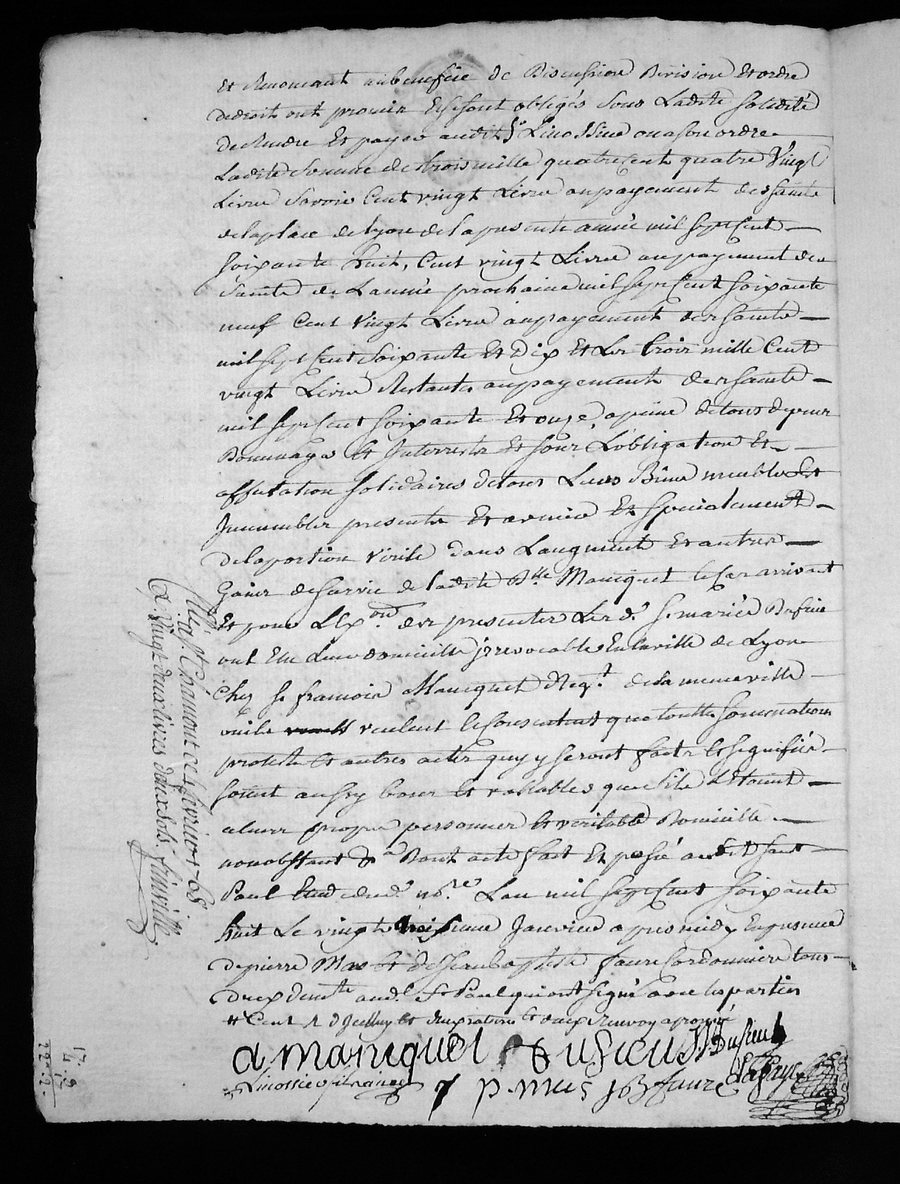 et Renoncant au benefice de Discussion Division Et ordre
de droit ont promis Et se sont obligés sous Ladite solidité
de Rendre Et payer audit Sr Linossier ou a son ordre
Ladite Somme de trois mille quatre Cent quatre Vingt
Livre savoir Cent vingt Livre au payement des sainte
de la place de Lyon de la presente année mil sept Cent
soixante huit, Cent vingt Livre au payement des
Sainte de L'année prochaine mil sept Cent soixante
neuf Cent Vingt Livre au payement des sainte
mil sept Cent Soixante Et Dix Et Les trois mille Cent
vingt Livre Restante au payement des sainte
mil sept Cent soixante Et onze, a peine de tous depens
Dommage Et Interrests Et sous L'obligation Et
affectation solidaires de tous Leurs Biens meubles Et
Immeubles presents Et avenir Et specialement
de la portion virile dans L'augment Et autres
Gains de survie de ladite Dlle Maniquet le Cas arrivant
Et pour L'Exon des presentes Les d. s. mariés Dufieu
ont Elu Leur domicille irrevocable En la ville de Lyon
Chez Sr francois Maniquet Negt de la meme ville
veulent Et Consentent que toutte Sommations
proteste Et autres actes quy y seront faits Et signifiés
soient aussy bones Et valliables que sils Etoient
a leurs propre personnes Et veritable Domicille
nonobstant &a Dont acte fait Et passé audit saint
Paul Etude du d. nre L'an mil sept Cent soixante
huit Le vingt troisieme Janvier apres midy En presence
de pierre Mas Et de Jean baptiste faure Cordonniers tous
Deux demts aud. St Paul qui ont signé avec les parties
a maniquet Dufieu JJ Dufieu
Linossier p. mas JB faure
Cllé a St Chamont le 4 fevrier 1768
R. Vingt deux livres deux sols